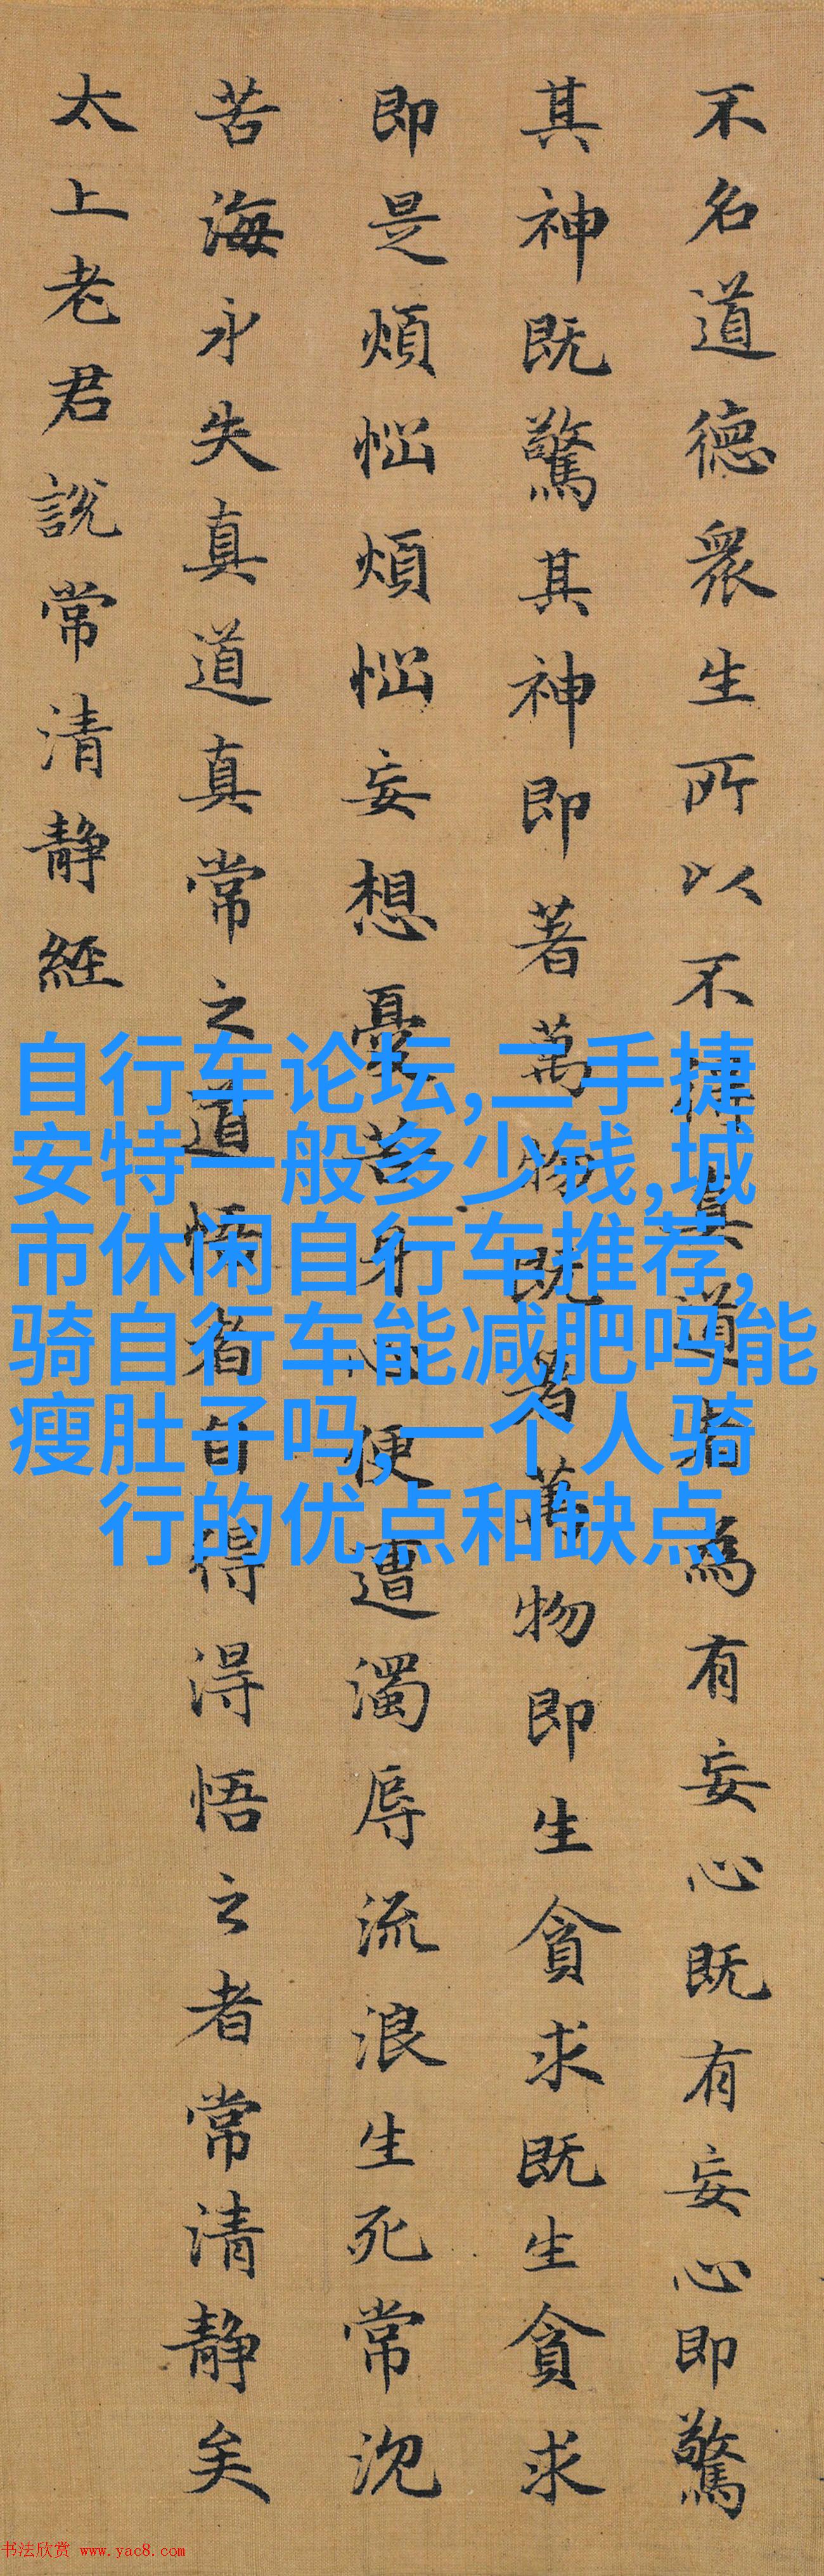 不名道德衆生所以不得真道者為有妄心既有妄心即驚
其神既驚其神即著萬物既著萬物即生貪求既生貪求
即是煩惱煩惱妄想憂苦身心便遭濁辱流浪生死常沉
苦海永失真道真常之道悟者自得得悟之者常清静矣
太上老君説常清静經
自行车论坛,二手捷
安特一般多少钱,城
市休闲自行车推荐,
骑自行车能减肥吗能
瘦肚子吗,一个人骑
行的优点和缺点
书法欣赏 www.yac8.com